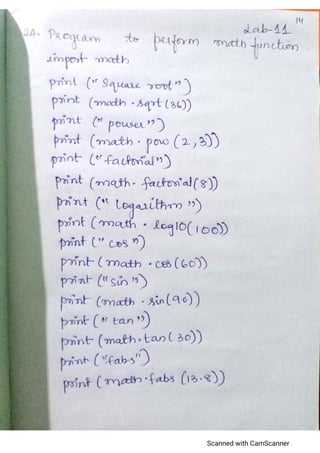 14
Lab-11
2A. Program to perform math function.
import math
print ("Square root")
print (math.sqrt(36))
print ("power")
print (math.pow(2,3))
print ("factorial")
print (math.factorial(8))
print ("Logarithm")
print (math.log10(100))
print ("cos")
print (math.cos(60))
print ("sin")
print (math.sin(90))
print ("tan")
print (math.tan(30))
print ("fabs")
print (math.fabs(13.8))
Scanned with CamScanner